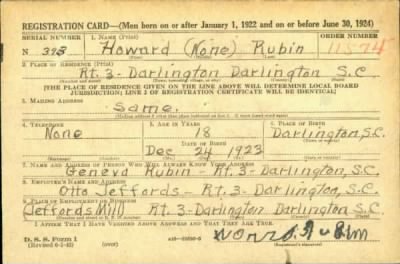 REGISTRATION CARD—(Men born on or after January 1, 1922 and on or before June 30, 1924)
SERIAL NUMBER 1. NAME (Print) ORDER NUMBER
N 393 Howard (None) Rubin 11574
2. PLACE OF RESIDENCE (Print)
Rt. 3 - Darlington Darlington S.C.
[THE PLACE OF RESIDENCE GIVEN ON THE LINE ABOVE WILL DETERMINE LOCAL BOARD
JURISDICTION; LINE 2 OF REGISTRATION CERTIFICATE WILL BE IDENTICAL]
3. MAILING ADDRESS
Same.
4. TELEPHONE 5. AGE IN YEARS 6. PLACE OF BIRTH
None 18 Darlington,
DATE OF BIRTH
Dec 24 1923 S.C.
7. NAME AND ADDRESS OF PERSON WHO WILL ALWAYS KNOW YOUR ADDRESS
Geneva Rubin - Rt. 3 - Darlington, S.C.
8. EMPLOYER'S NAME AND ADDRESS
Otto Jeffords - Rt. 3 - Darlington, S.C.
9. PLACE OF EMPLOYMENT OR BUSINESS
Jeffords Mill Rt. 3 - Darlington Darlington S.C.
I AFFIRM THAT I HAVE VERIFIED ABOVE ANSWERS AND THAT THEY ARE TRUE.
D. S. S. Form 1
(Revised 6-9-41)
(Registrant's signature)